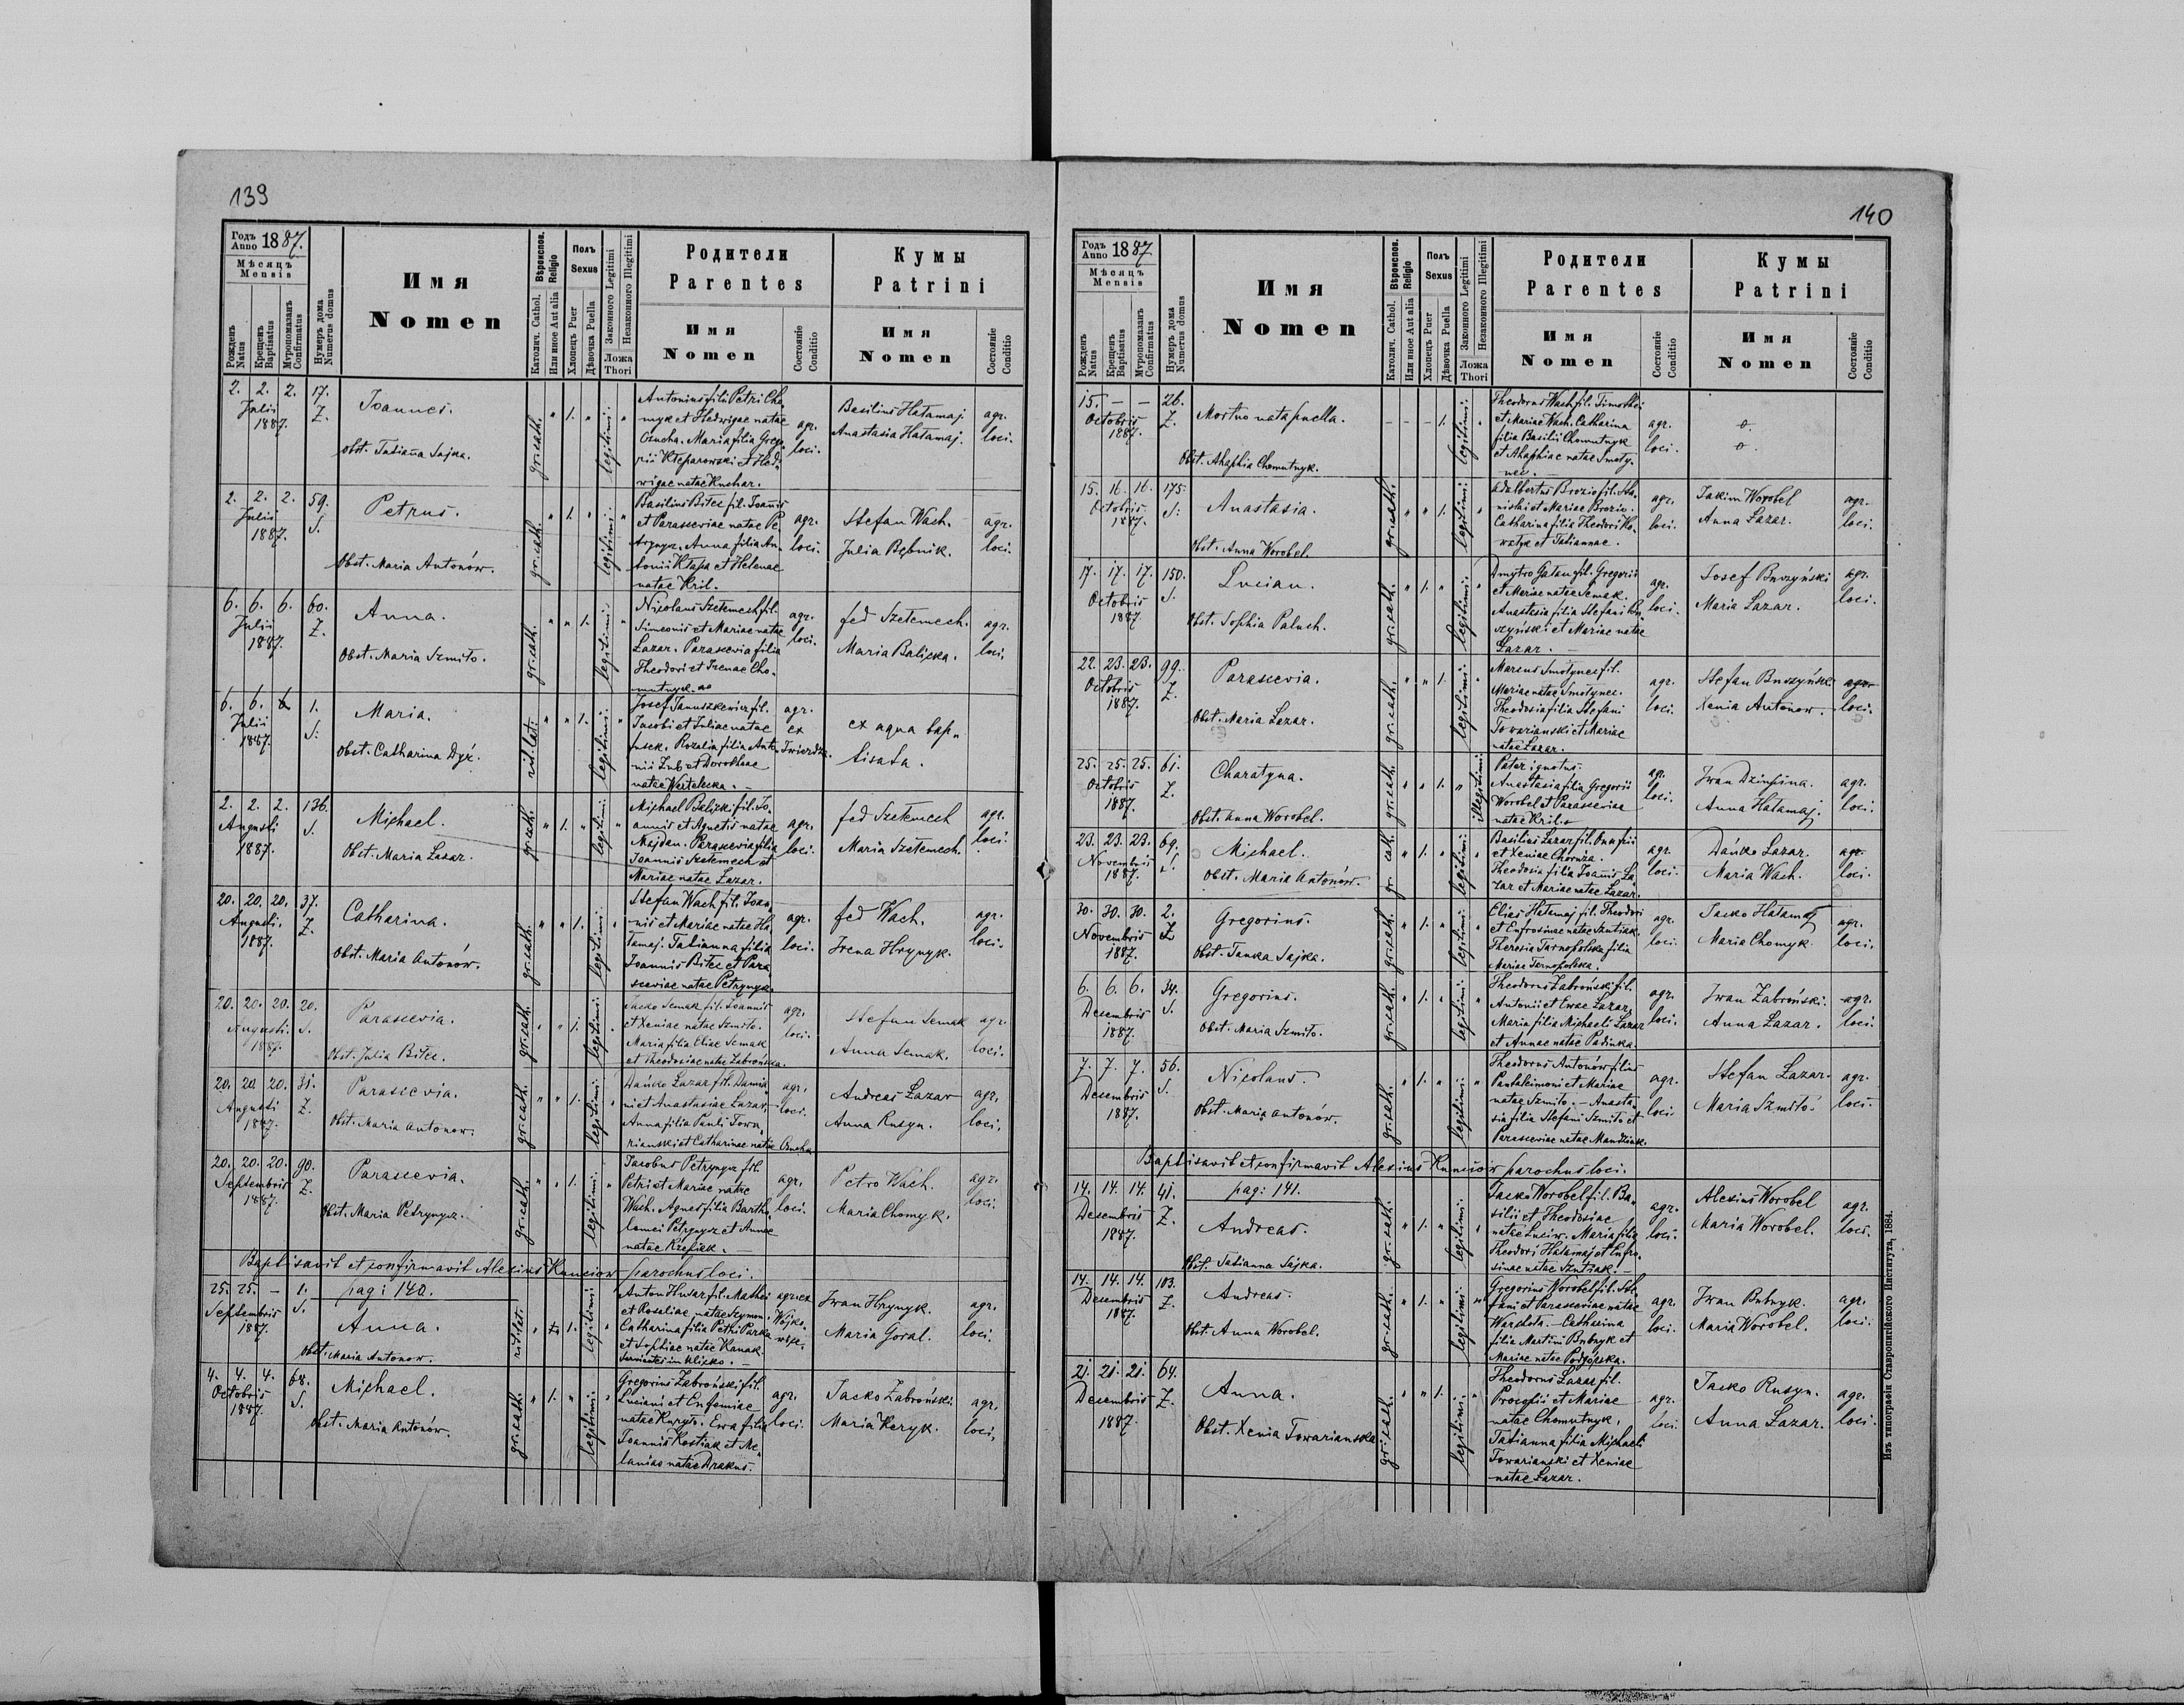 139
Годъ Anno 1887.
Мѣсяцъ Mensis
Рожденъ Natus
Крещенъ Baptisatus
Мѵропомазанъ Confirmatus
Нумеръ дома Numerus domus
Имя
Nomen
Вѣроиспов. Religio
Католич. Cathol.
Или иное Aut alia
Полъ Sexus
Хлопецъ Puer
Дѣвочка Puella
Законного Legitimi
Незаконного Illegitimi
Ложа Thori
Родители
Parentes
Имя
Nomen
Состояніе Conditio
Кумы
Patrini
Имя
Nomen
Состояніе Conditio
2. 2. 2. 17.
Julii Z.
1887.
Joannes.
Obst. Tatianna Sajka.
gr. cath. " 1. " legitimi. "
Antonius fil. Petri Cho
myk et Hedwigae natae
Czucha. Maria filia Grego
rii Kleparowski et Hed
wigae natae Kuchar.
agr.
loci.
Basilius Hałamaj
Anastasia Hałamaj.
agr.
loci.
2. 2. 2. 59.
Julii S.
1887.
Petrus.
Obst. Maria Antonów.
gr. cath. " 1. " legitimi. "
Basilius Bilec fil. Joannis
et Parasceviae natae Pe
trynyx. Anna filia An
tonii Kłapa et Helenae
natae Kril.
agr.
loci.
Stefan Wach.
Julia Bębnik.
agr.
loci.
6. 6. 6. 60.
Julii Z.
1887.
Anna.
Obst. Maria Szmiło.
gr. cath. " " 1. legitimi. "
Nicolaus Szełemech fil.
Simeonis et Mariae natae
Lazar. Parascevia filia
Theodori et Irenae Cho
mutnyk.
agr.
loci.
Fed Szełemech.
Maria Balicka.
agr.
loci.
6. 6. 6. 1.
Julii S.
1887.
Maria.
Obst. Catharina Dyź.
rit. lat. " " 1. legitimi. "
Josef Januszkiewicz fil.
Jacobi et Juliae natae
Rozalia filia Anto
nii Zub et Dorotheae
agr.
ex
Twierdza.
ex aqua bap
tisata.
2. 2. 2. 136.
Augusti S.
1887.
Michael.
Obst. Maria Lazar.
gr. cath. " 1. " legitimi. "
Michael Balicki fil. Jo
annis et Agnetis natae
Majdan. Parascevia filia
Joannis Szełemech et
Mariae natae Lazar.
agr.
loci.
Fed Szełemech
Maria Szełemech.
agr.
loci.
20. 20. 20. 37.
Augusti. Z.
1887.
Catharina.
Obst. Maria Antonów.
gr. cath. " " 1. legitimi. "
Stefan Wach fil. Joan
nis et Mariae natae Ha
łamaj. Tatianna filia
Joannis Bilec et Para
sceviae natae Petrynyx.
agr.
loci.
Fed Wach.
Irena Hrynyk.
agr.
loci.
20. 20. 20. 20.
Augusti S.
1887.
Parascevia.
Obst. Julia Bilec.
gr. cath. " " 1. legitimi. "
Jacko Semak fil. Joannis
et Xeniae natae Szmiło.
Maria filia Eliae Semak
et Theodosiae natae Zabrońska.
agr.
loci.
Stefan Semak
Anna Semak.
agr.
loci.
20. 20 20. 31.
Augusti Z.
1887.
Parascevia.
Obst. Maria Antonow.
gr. cath. " " 1. legitimi. "
Dańko Lazar fil. Damia
ni et Anastasiae Lazar.
Anna filia Pauli Towa
rianski et Catharinae natae Czucha.
agr.
loci.
Andreas Lazar
Anna Rusyn.
agr.
loci.
20. 20. 20. 90.
Septembris Z.
1887.
Parascevia.
Obst. Maria Petrynyx.
gr. cath. " " 1. legitimi. "
Jacobus Petrynyx fil.
Petri et Mariae natae
Wach. Agnes filia Bartho
lomei Petrynyx et Annae
natae Krefiak.
agr.
loci.
Petro Wach.
Maria Chomyk.
agr.
loci.
Baptisavit et confirmavit Alexius Kunciów parochus loci.
25. 25. - 1.
Septembris S.
1887.
pag: 140.
Anna.
Obst. Maria Antonow.
rit. lat. " 1. legitimi "
Anton Husar fil. Mathei
et Rosaliae natae Szymon.
Catharina filia Petri Parka
et Sophiae natae Kanak
agr. ex
Iwan Hrynyk.
Maria Goral.
agr.
loci.
4. 4. 4. 68.
Octobris S.
1887.
Michael.
Obst. Maria Antonów.
gr. cath. " 1. " legitimi. "
Gregorius Zabroński fil.
Luciani et Eufemiae
natae Kupyto. Ewa filia
Joannis Kostiak et Me
laniae natae Drakus.
agr.
loci.
Jacko Zabroński
Maria Keryk.
agr.
loci.
140
Годъ Anno 1887
Мѣсяцъ Mensis
Рожденъ Natus
Крещенъ Baptisatus
Мѵропомазанъ Confirmatus
Нумеръ дома Numerus domus
Имя
Nomen
Вѣроиспов. Religio
Католич. Cathol.
Или иное Aut alia
Полъ Sexus
Хлопецъ Puer
Дѣвочка Puella
Законного Legitimi
Незаконного Illegitimi
Ложа Thori
Родители
Parentes
Имя
Nomen
Состояніе Conditio
Кумы
Patrini
Имя
Nomen
Состояніе Conditio
15. - - 26.
Octobris Z.
1887.
Mortuo nata puella.
Obst. Ahaphia Chomutnyk.
- - - 1. legitimi. "
Theodorus Wach fil. Timothei
et Mariae Wach. Catharina
filia Basilii Chomutnyk
et Ahaphiae natae Smoły
nec.
agr.
loci.
o.
o.
15. 16. 16. 175.
Octobris S.
1887.
Anastasia.
Obst. Anna Worobel.
gr. cath. " " 1. legitimi. "
Adalbertus Brozio fil. Sta
nislai et Mariae Brozio.
Catharina filia Theodori
et Tatiannae.
agr.
loci.
Jakim Worobel
Anna Lazar.
agr.
loci.
17. 17. 17. 150.
Octobris S.
1887.
Lucian.
Obst. Sophia Paluch.
gr. cath. " 1. " legitimi. "
Dmytro Gałan fil. Gregorii
et Mariae natae Semak.
Anastasia filia Stefani Bu
szyński et Mariae natae
Lazar.
agr.
loci.
Josef Buszyński
Maria Lazar.
agr.
loci.
22. 23. 23. 99.
Octobris Z.
1887.
Parascevia.
Obst. Maria Lazar.
gr. cath. " " 1. legitimi. "
Marcus Smołynec fil.
Mariae natae Smołynec.
Theodosia filia Stefani
Towarianski et Mariae
natae Lazar.
agr.
loci.
Stefan Buszyński
Xenia Antonow.
agr.
loci.
25. 25. 25. 61.
Octobris Z.
1887.
Charatyna.
Obst. Anna Worobel.
gr. cath. " " 1. " illegitimi.
Pater ignotus.
Anastasia filia Gregorii
Worobel et Parasceviae
natae Kril.
agr.
loci.
Iwan Dziupina.
Anna Hałamaj.
agr.
loci.
23. 23. 23. 69.
Novembris S.
1887.
Michael.
Obst. Maria Antonów.
gr. cath. " 1. " legitimi. "
Basilius Lazar fil. Onufrii
et Xeniae Chomża.
Theodosia filia Joannis La
zar et Mariae natae Lazar.
agr.
loci.
Dańko Lazar.
Maria Wach.
agr.
loci.
30. 30. 30. 2.
Novembris Z.
1887.
Gregorius.
Obst. Tanka Sajka.
gr. cath. " 1. " legitimi. "
Elias Hałamaj fil. Theodori
et Eufrosinae natae Szutiak.
Theresia Tarnopolska filia
Mariae Tarnopolska.
agr.
loci.
Jacko Hałamaj
Maria Chomyk.
agr.
loci.
6. 6. 6. 34.
Decembris S.
1887.
Gregorius.
Obst. Maria Szmiło.
gr. cath. " 1. " legitimi. "
Theodorus Zabroński fil.
Antonii et Ewae Lazar.
Maria filia Michaeli Lazar
et Annae natae Padinka.
agr.
loci.
Iwan Zabroński.
Anna Lazar.
agr.
loci.
7. 7. 7. 56.
Decembris S.
1887.
Nicolaus.
Obst. Maria Antonów.
gr. cath. " 1. " legitimi. "
Theodorus Antonów filius
Pantaleimoni et Mariae
natae Szmiło. Anasta
sia filia Stefani Szmiło et
Parasceviae natae Mandziak.
agr.
loci.
Stefan Lazar.
Maria Szmiło.
agr.
loci.
Baptisavit et confirmavit Alexius Kunciów parochus loci.
14. 14. 14. 41.
Decembris Z.
1887.
pag: 141.
Andreas.
Obst. Tatianna Sajka.
gr. cath. " 1. " legitimi. "
Jacko Worobel fil. Ba
silii et Theodosiae
natae Luciw. Maria filia
Theodori Hałamaj et Eufro
sinae natae Szutiak.
agr.
loci.
Alexius Worobel
Maria Worobel.
agr.
loci.
14. 14. 14. 103.
Decembris Z.
1887.
Andreas.
Obst. Anna Worobel.
gr. cath. " 1. " legitimi. "
Gregorius Worobel fil. Ste
fani et Parasceviae natae
Warchoła. Catharina
filia Martini Bubnyk et
Mariae natae Podgórska.
agr.
loci.
Iwan Bubnyk.
Maria Worobel.
agr.
loci.
21. 21. 21. 64.
Decembris Z.
1887.
Anna.
Obst. Xenia Towarianska
gr. cath. " " 1. legitimi. "
Theodorus Lazar fil.
Procopii et Mariae
natae Chomutnyk.
Tatianna filia Michaeli
Towarianski et Xeniae
natae Lazar.
agr.
loci.
Jacko Rusyn.
Anna Lazar.
agr.
loci.
Изъ типографіи Ставропигійского Института, 1884.